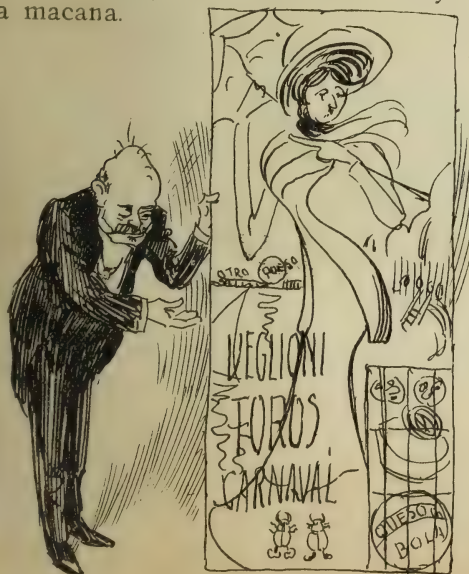 a macana.
OTRO QUESO
VEGLIONI
TOROS
CARNAVAL
QUESO DE
BOLA